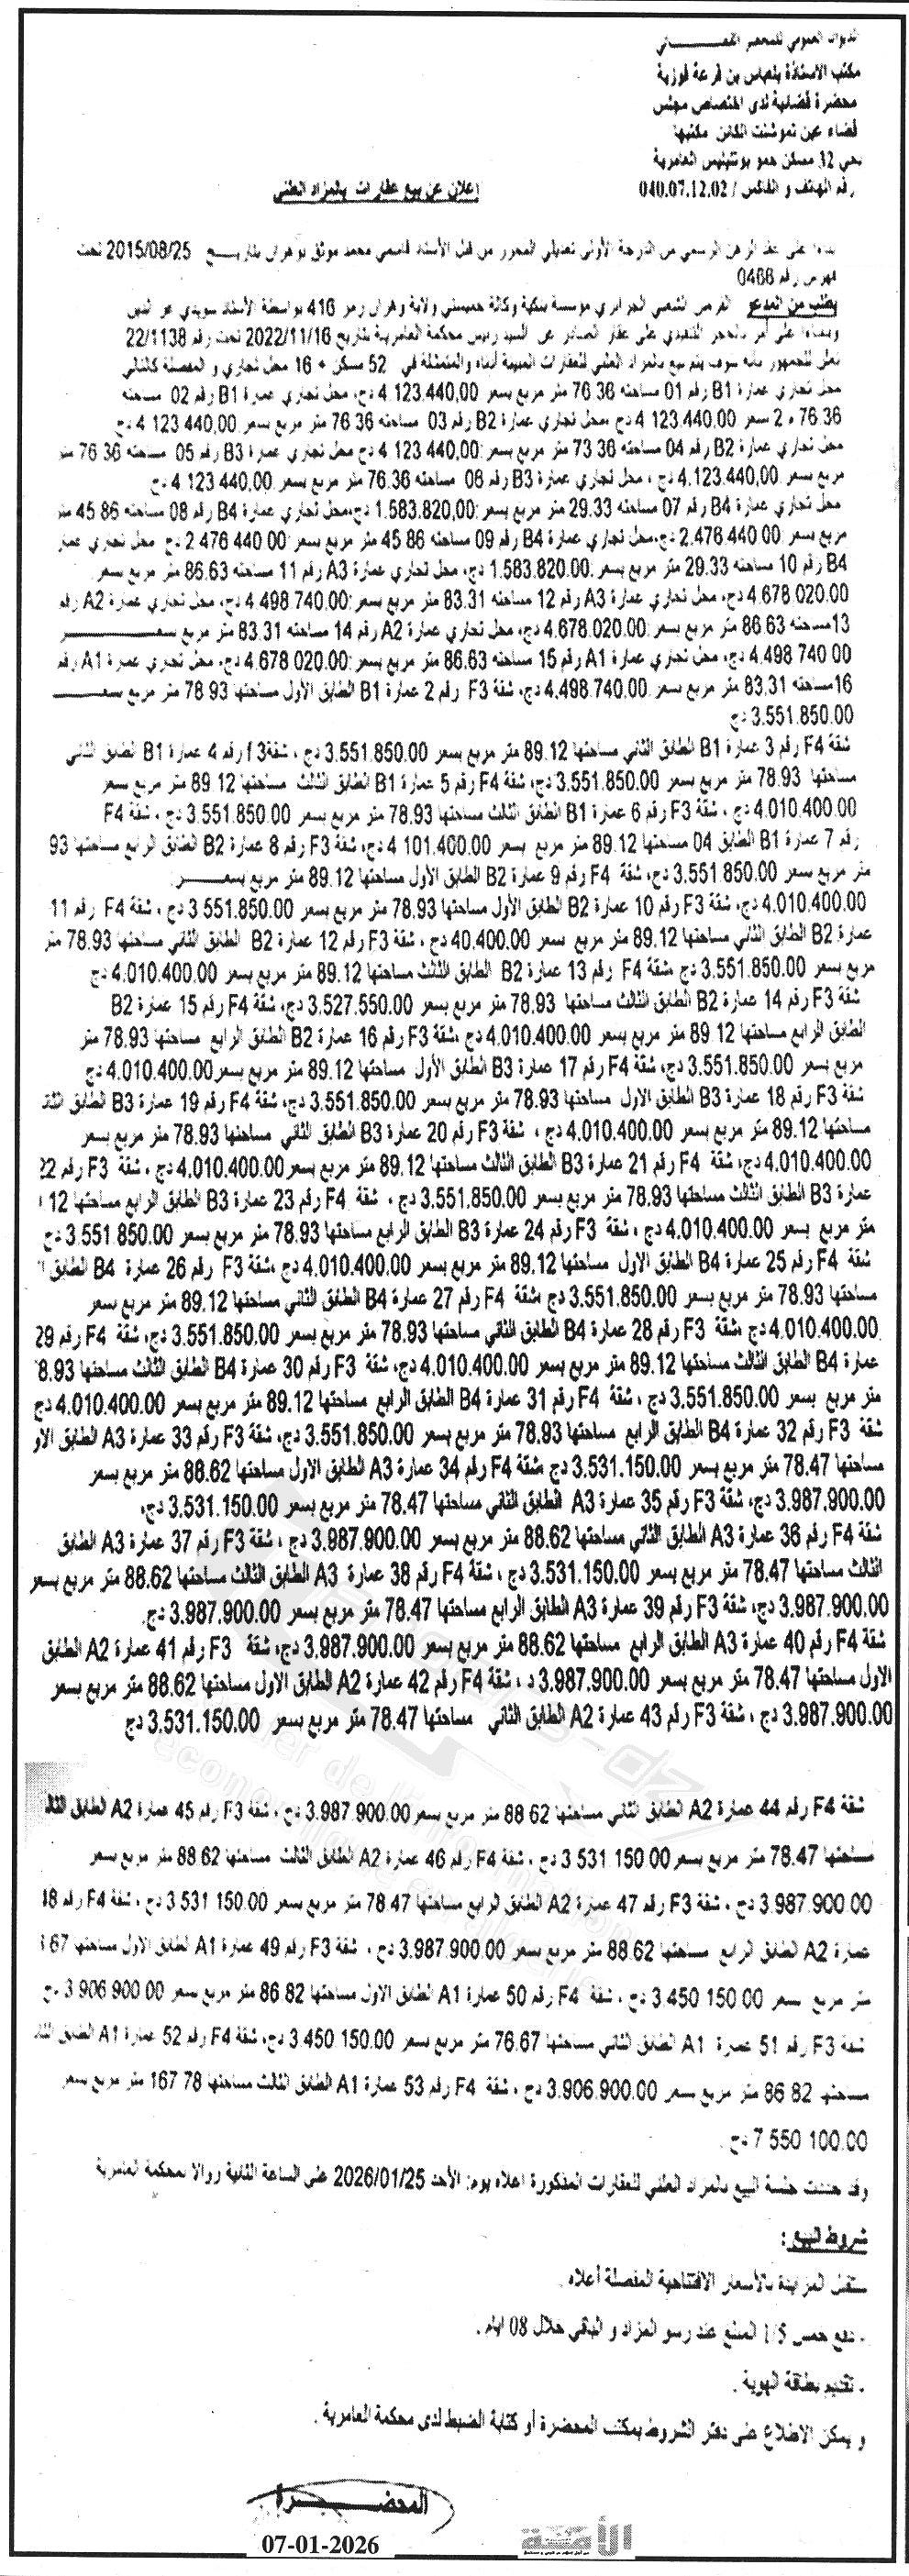 الديوان العمومي للمحضر القضائي
مكتب الاستاذة بلعباس بن قرعة فوزية
محضرة قضائية لدى اختصاص مجلس
قضاء عين تموشنت الكائن مكتبها
بحي 32 مسكن حمو بوتليليس العامرية
رقم الهاتف و الفاكس / 040.07.12.02
إعلان عن بيع عقارات بالمزاد العلني
بناءا على عقد الرهن الرسمي من الدرجة الأولى تعديلي المحرر من قبل الأستاذ قاسمي محمد موثق بوهران بتاريخ 2015/08/25 تحت
فهرس رقم 0466
بطلب من المدعو القرض الشعبي الجزائري مؤسسة بنكية وكالة حميستي ولاية وهران رمز 416 بواسطة الأستاذ سويدي عز الدين
وبناءا على أمر بالحجز التنفيذي على عقار الصادر عن السيد رئيس محكمة العامرية بتاريخ 2022/11/16 تحت رقم 22/1138
نعلن للجمهور بأنه سوف يتم بيع بالمزاد العلني للعقارات المبينة أدناه والمتمثلة في 52 مسكن + 16 محل تجاري و المفصلة كالتالي
محل تجاري عمارة B1 رقم 01 مساحته 76.36 متر مربع بسعر 4.123.440,00 دج، محل تجاري عمارة B1 رقم 02 مساحته
76.36 م 2 بسعر 4.123.440,00 دج ،محل تجاري عمارة B2 رقم 03 مساحته 76.36 متر مربع بسعر 4.123.440,00 دج
محل تجاري عمارة B2 رقم 04 مساحته 73.36 متر مربع بسعر :4.123.440,00 دج محل تجاري عمارة B3 رقم 05 مساحته 76.36 متر
مربع بسعر 4.123.440,00 دج ، محل تجاري عمارة B3 رقم 06 مساحته 76.36 متر مربع بسعر 4.123.440,00 دج
محل تجاري عمارة B4 رقم 07 مساحته 29.33 متر مربع بسعر :1.583.820,00 دج،محل تجاري عمارة B4 رقم 08 مساحته 45.86 متر
مربع بسعر :2.476.440.00 دج،محل تجاري عمارة B4 رقم 09 مساحته 45.86 متر مربع بسعر :2.476.440.00 دج محل تجاري عمارة
B4 رقم 10 مساحته 29.33 متر مربع بسعر :1.583.820.00 دج، محل تجاري عمارة A3 رقم 11 مساحته 86.63 متر مربع بسعر
4.678.020.00 دج، محل تجاري عمارة A3 رقم 12 مساحته 83.31 متر مربع بسعر:4.498.740.00 دج، محل تجاري عمارة A2 رقم
13مساحته 86.63 متر مربع بسعر :4.678.020.00 دج، محل تجاري عمارة A2 رقم 14 مساحته 83.31 متر مربع بسعر
4.498.740.00 دج، محل تجاري عمارة A1 رقم 15 مساحته 86.63 متر مربع بسعر :4.678.020.00 دج، محل تجاري عمارة A1 رقم
16مساحته 83.31 متر مربع بسعر :4.498.740.00 دج، شقة F3 رقم 2 عمارة B1 الطابق الأول مساحتها 78.93 متر مربع بسعر
3.551.850.00 دج
شقة F4 رقم 3 عمارة B1 الطابق الثاني مساحتها 89.12 متر مربع بسعر 3.551.850.00 دج ، شقة f3 رقم 4 عمارة B1 الطابق الثاني
مساحتها 78.93 متر مربع بسعر 3.551.850.00 دج، شقة F4 رقم 5 عمارة B1 الطابق الثالث مساحتها 89.12 متر مربع بسعر
4.010.400.00 دج ، شقة F3 رقم 6 عمارة B1 الطابق الثالث مساحتها 78.93 متر مربع بسعر 3.551.850.00 دج ، شقة F4
رقم 7 عمارة B1 الطابق 04 مساحتها 89.12 متر مربع بسعر 4.101.400.00 دج، شقة F3 رقم 8 عمارة B2 الطابق الرابع مساحتها 93
متر مربع بسعر 3.551.850.00 دج، شقة F4 رقم 9 عمارة B2 الطابق الأول مساحتها 89.12 متر مربع بسعر
4.010.400.00 دج، شقة F3 رقم 10 عمارة B2 الطابق الأول مساحتها 78.93 متر مربع بسعر 3.551.850.00 دج ، شقة F4 رقم 11
عمارة B2 الطابق الثاني مساحتها 89.12 متر مربع بسعر 40.400.00 دج ، شقة F3 رقم 12 عمارة B2 الطابق الثاني مساحتها 78.93 متر
مربع بسعر 3.551.850.00 دج ،شقة F4 رقم 13 عمارة B2 الطابق الثالث مساحتها 89.12 متر مربع بسعر 4.010.400.00 دج
شقة F3 رقم 14 عمارة B2 الطابق الثالث مساحتها 78.93 متر مربع بسعر 3.527.550.00 دج، شقة F4 رقم 15 عمارة B2
الطابق الرابع مساحتها 89.12 متر مربع بسعر 4.010.400.00 دج ،شقة F3 رقم 16 عمارة B2 الطابق الرابع مساحتها 78.93 متر
مربع بسعر 3.551.850.00 دج، شقة F4 رقم 17 عمارة B3 الطابق الأول مساحتها 89.12 متر مربع بسعر4.010.400.00 دج
شقة F3 رقم 18 عمارة B3 الطابق الاول مساحتها 78.93 متر مربع بسعر 3.551.850.00 دج، شقة F4 رقم 19 عمارة B3 الطابق الثاني
مساحتها 89.12 متر مربع بسعر 4.010.400.00 دج ، شقة F3 رقم 20 عمارة B3 الطابق الثاني مساحتها 78.93 متر مربع بسعر
4.010.400.00 دج، شقة F4 رقم 21 عمارة B3 الطابق الثالث مساحتها 89.12 متر مربع بسعر 4.010.400.00 دج ، شقة F3 رقم 22
عمارة B3 الطابق الثالث مساحتها 78.93 متر مربع بسعر 3.551.850.00 دج ، شقة F4 رقم 23 عمارة B3 الطابق الرابع مساحتها 12
متر مربع بسعر 4.010.400.00 دج ، شقة F3 رقم 24 عمارة B3 الطابق الرابع مساحتها 78.93 متر مربع بسعر 3.551.850.00 دج
شقة F4 رقم 25 عمارة B4 الطابق الاول مساحتها 89.12 متر مربع بسعر 4.010.400.00 دج ،شقة F3 رقم 26 عمارة B4 الطابق
مساحتها 78.93 متر مربع بسعر 3.551.850.00 دج ،شقة F4 رقم 27 عمارة B4 الطابق الثاني مساحتها 89.12 متر مربع بسعر
4.010.400.00 دج ،شقة F3 رقم 28 عمارة B4 الطابق الثاني مساحتها 78.93 متر مربع بسعر 3.551.850.00 دج، شقة F4 رقم 29
عمارة B4 الطابق الثالث مساحتها 89.12 متر مربع بسعر 4.010.400.00 دج، شقة F3 رقم 30 عمارة B4 الطابق الثالث مساحتها 8.93
متر مربع بسعر 3.551.850.00 دج ، شقة F4 رقم 31 عمارة B4 الطابق الرابع مساحتها 89.12 متر مربع بسعر 4.010.400.00 دج
شقة F3 رقم 32 عمارة B4 الطابق الرابع مساحتها 78.93 متر مربع بسعر 3.551.850.00 دج، شقة F3 رقم 33 عمارة A3 الطابق الاو
مساحتها 78.47 متر مربع بسعر 3.531.150.00 دج ،شقة F4 رقم 34 عمارة A3 الطابق الاول مساحتها 88.62 متر مربع بسعر
3.987.900.00 دج، شقة F3 رقم 35 عمارة A3 الطابق الثاني مساحتها 78.47 متر مربع بسعر 3.531.150.00 دج،
شقة F4 رقم 36 عمارة A3 الطابق الثاني مساحتها 88.62 متر مربع بسعر 3.987.900.00 دج ، شقة F3 رقم 37 عمارة A3 الطابق
الثالث مساحتها 78.47 متر مربع بسعر 3.531.150.00 دج ، شقة F4 رقم 38 عمارة A3 الطابق الثالث مساحتها 88.62 متر مربع بسعر
3.987.900.00 دج، شقة F3 رقم 39 عمارة A3 الطابق الرابع مساحتها 78.47 متر مربع بسعر 3.987.900.00 دج.
شقة F4 رقم 40 عمارة A3 الطابق الرابع مساحتها 88.62 متر مربع بسعر 3.887.900.00 دج، شقة F3 رقم 41 عمارة A2 الطابق
الاول مساحتها 78.47 متر مربع بسعر 3.987.900.00 د ، شقة F4 رقم 42 عمارة A2 الطابق الاول مساحتها 88.62 متر مربع بسعر
3.987.900.00 دج ، شقة F3 رقم 43 عمارة A2 الطابق الثاني مساحتها 78.47 متر مربع بسعر 3.531.150.00 دج
شقة F4 رقم 44 عمارة A2 الطابق الثاني مساحتها 88.62 متر مربع بسعر 3.987.900.00 دج ، شقة F3 رقم 45 عمارة A2 الطابق الثالث
مساحتها 78.47 متر مربع بسعر 3.531.150.00 دج ، شقة F4 رقم 46 عمارة A2 الطابق الثالث مساحتها 88.62 متر مربع بسعر
3.987.900.00 دج ، شقة F3 رقم 47 عمارة A2 الطابق الرابع مساحتها 78.47 متر مربع بسعر 3.531.150.00 دج ، شقة F4 رقم 48
عمارة A2 الطابق الرابع مساحتها 88.62 متر مربع بسعر 3.987.900.00 دج ، شقة F3 رقم 49 عمارة A1 الطابق الاول مساحتها
متر مربع بسعر 3.450.150.00 دج ، شقة F4 رقم 50 عمارة A1 الطابق الاول مساحتها 86.82 متر مربع بسعر 3.906.900.00 دج
شقة F3 رقم 51 عمارة A1 الطابق الثاني مساحتها 76.67 متر مربع بسعر 3.450.150.00 دج، شقة F4 رقم 52 عمارة A1 الطابق الثاني
مساحتها 86.82 متر مربع بسعر 3.906.900.00 دج ، شقة F4 رقم 53 عمارة A1 الطابق الثالث مساحتها 167.78 متر مربع بسعر
7.550.100.00 دج .
وقد حددت جلسة البيع بالمزاد العلني للعقارات المذكورة اعلاه يوم: الأحد 2026/01/25 على الساعة الثانية زوالا بمحكمة العامرية
شروط البيع :
ستقبل المزايدة بالأسعار الافتتاحية المفصلة أعلاه .
- دفع خمس 1/5 المبلغ عند رسو المزاد و الباقي خلال 08 ايام .
- تقديم بطاقة الهوية .
و يمكن الاطلاع على دفتر الشروط بمكتب المحضرة أو كتابة الضبط لدى محكمة العامرية .
المحضرة
07-01-2026
الأمة